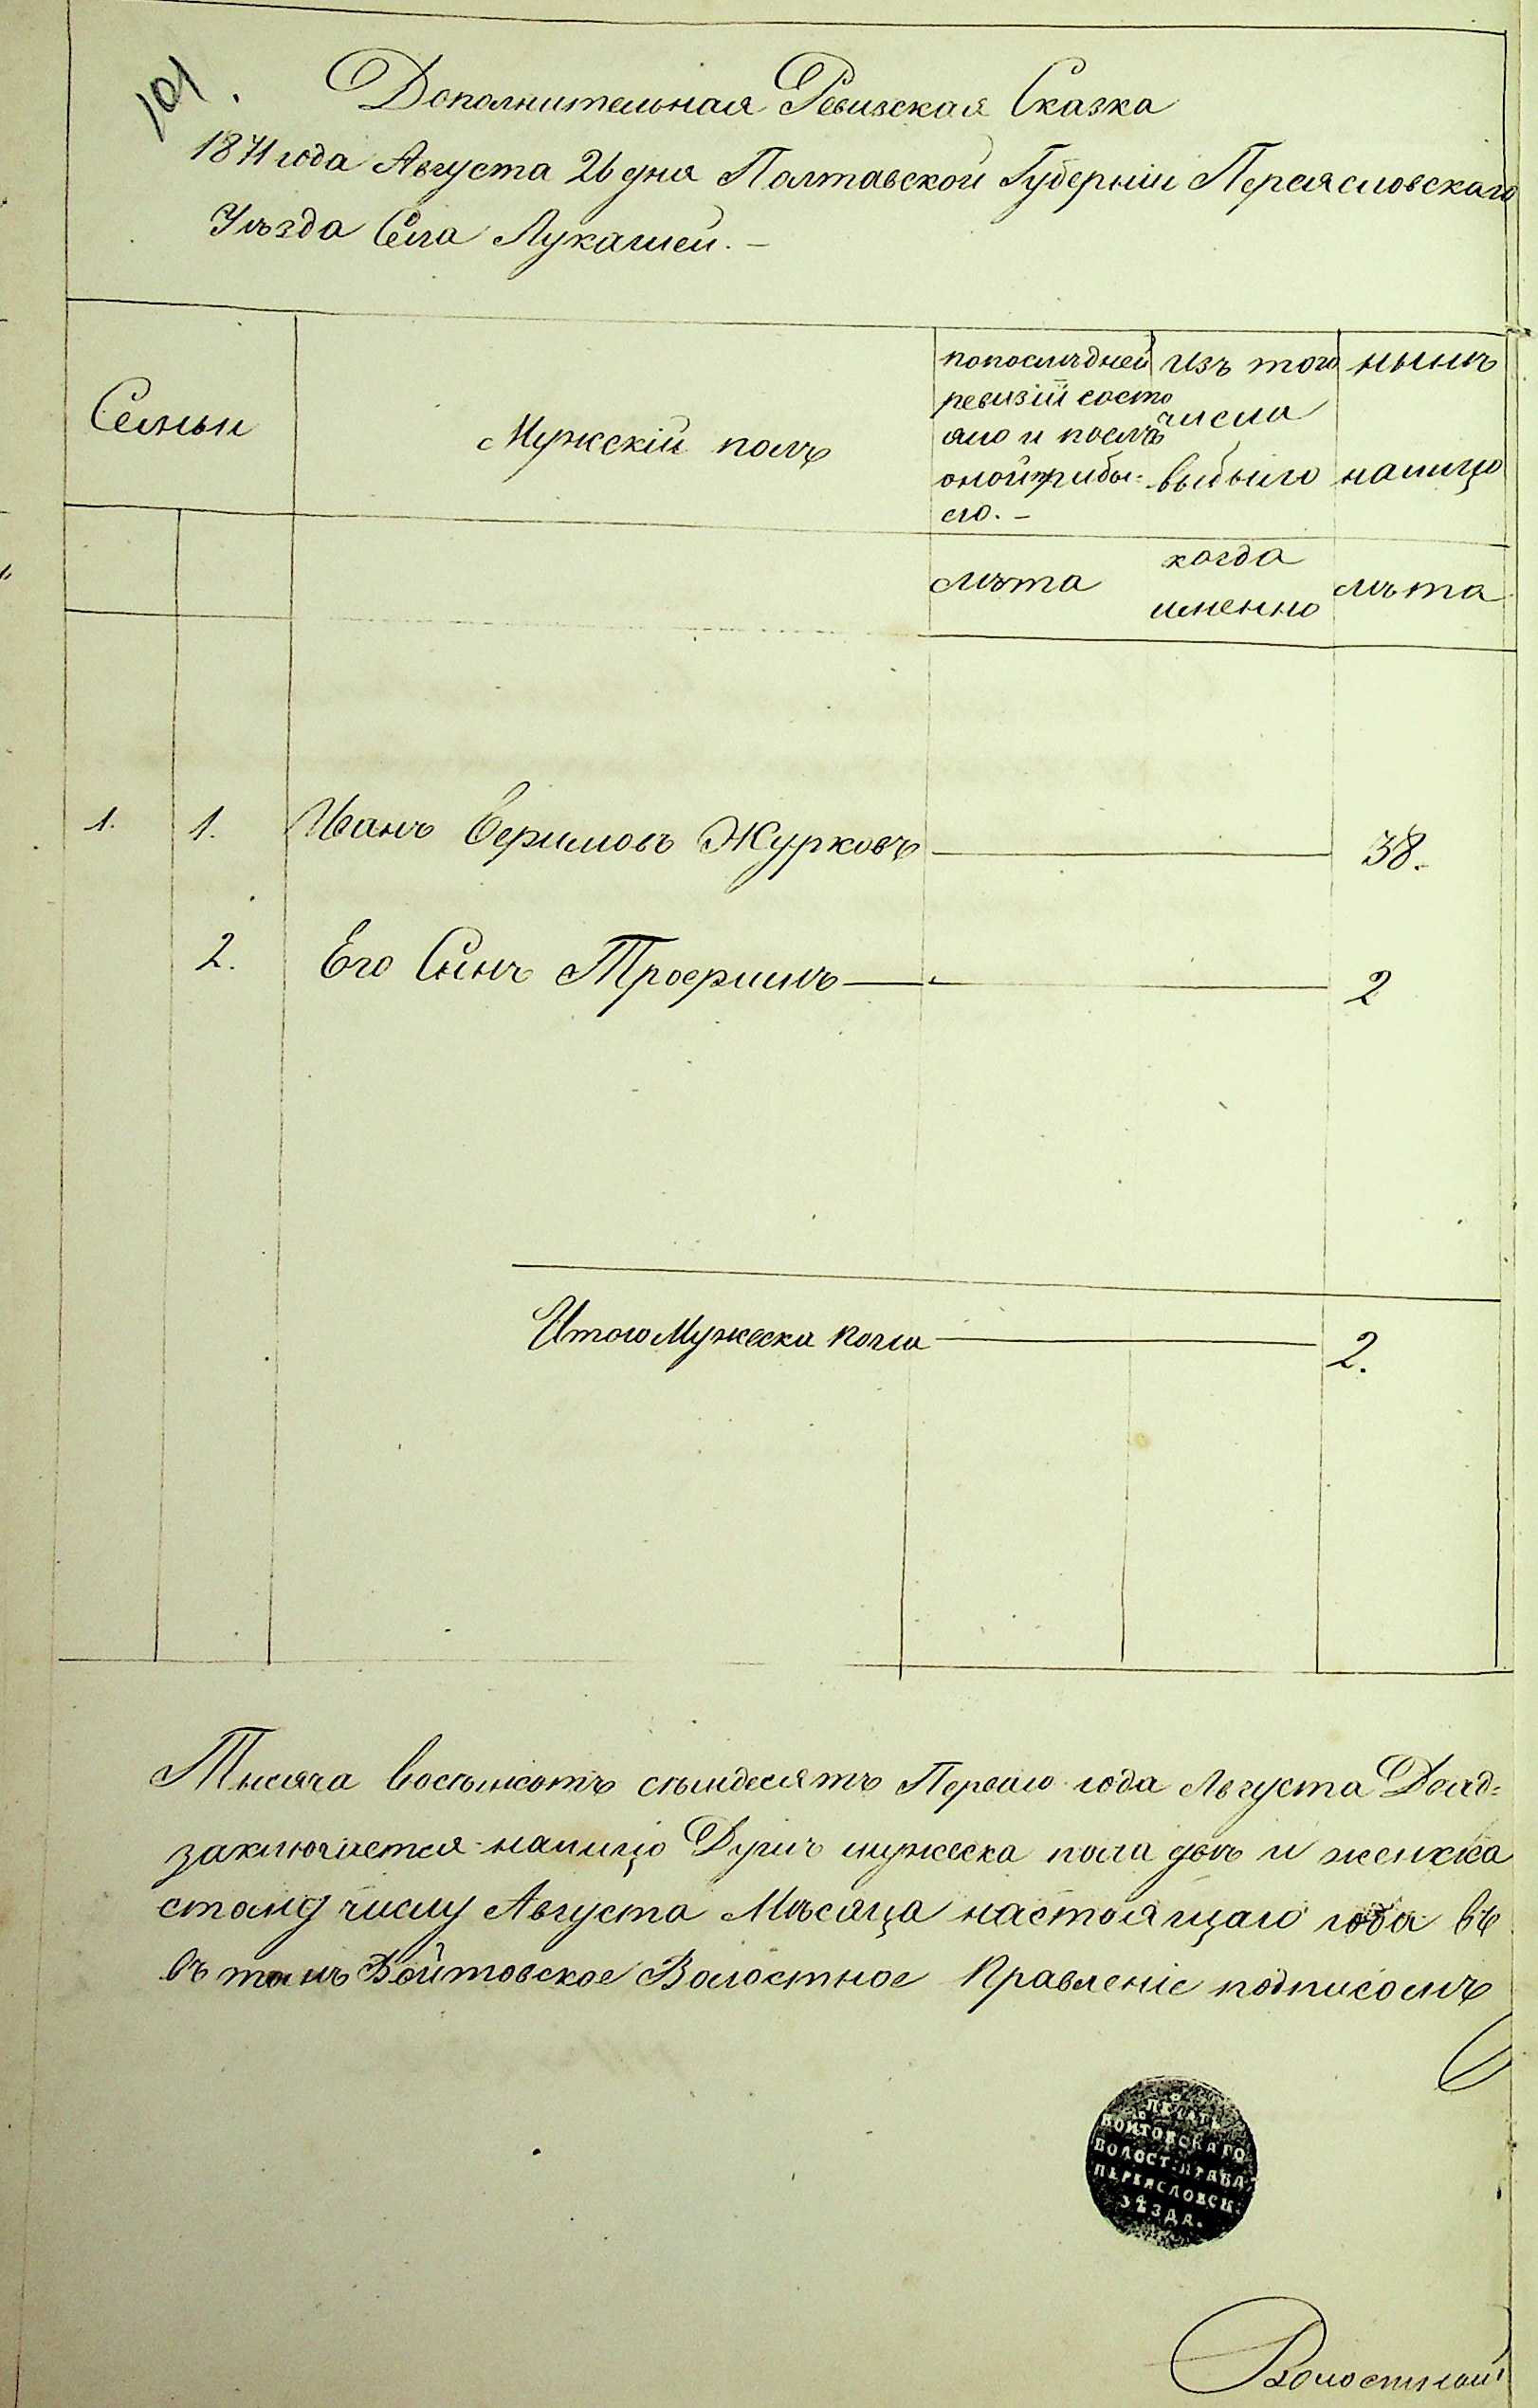 101.
Дополнительная Ревизская Сказка
1871 года Августа 26 дня Полтавской Губерніи Переясловскаго
Уѣзда Села Лукашей. —
Семьи
Мужскій полъ
попослѣдней
ревизіи состо
яло и послѣ
оной прибы-
ло. —
изъ того
числа
выбыло
нынѣ
налицо
лѣта
когда
именно
лѣта
1. 1. Иванъ Ефимовъ Журковъ 38.
2. Его Сынъ Трофимъ 2
Итого Мужеска пола 2.
Тысяча восемьсотъ семьдесятъ Перваго года Августа Двад-
заключается налицо Душъ мужеска пола двѣ и женска
стому числу Августа Мѣсяца настоящаго года въ
въ томъ Войтовское Волостное Правленіе подписомъ
ПЕЧАТЬ
ВОЙТОВСКАГО
ВОЛОСТ: ПРАВЛ:
ПЕРЕЯСЛОВСК:
УѢЗДА.
Волостной